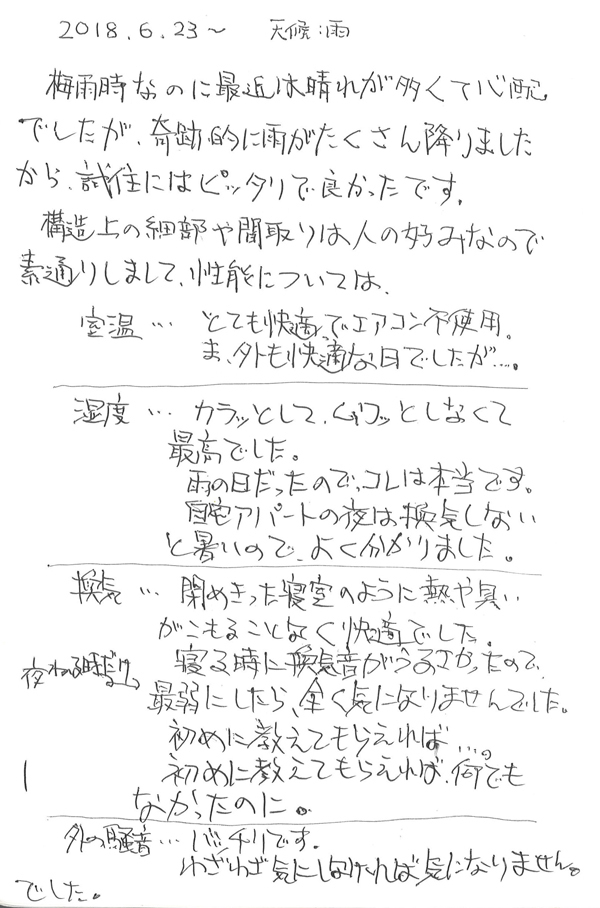 2018.6.23〜　天候:雨
梅雨時なのに最近は晴れが多くて心配
でしたが、奇跡的に雨がたくさん降りました
から、試住にはピッタリで良かったです。
構造上の細部や間取りは人の好みなので
素通りしまして、性能については、
室温… とても快適でエアコン不使用。
ま、外も快適な日でしたが….。
湿度… カラッとして、ムワッとしなくて
最高でした。
雨の日だったので、コレは本当です。
自宅アパートの夜は換気しない
と暑いので、よく分かりました。
換気… 閉めきった寝室のように熱や臭い
がこもることなく快適でした。
寝る時に換気音がうるさかったので、
夜ねる時だけ
最弱にしたら、全く気になりませんでした。
初めに教えてもらえれば….。
初めに教えてもらえれば、何でも
なかったのに。
外の騒音… バッチリです。
わざわざ気にしなければ気になりません。
でした。